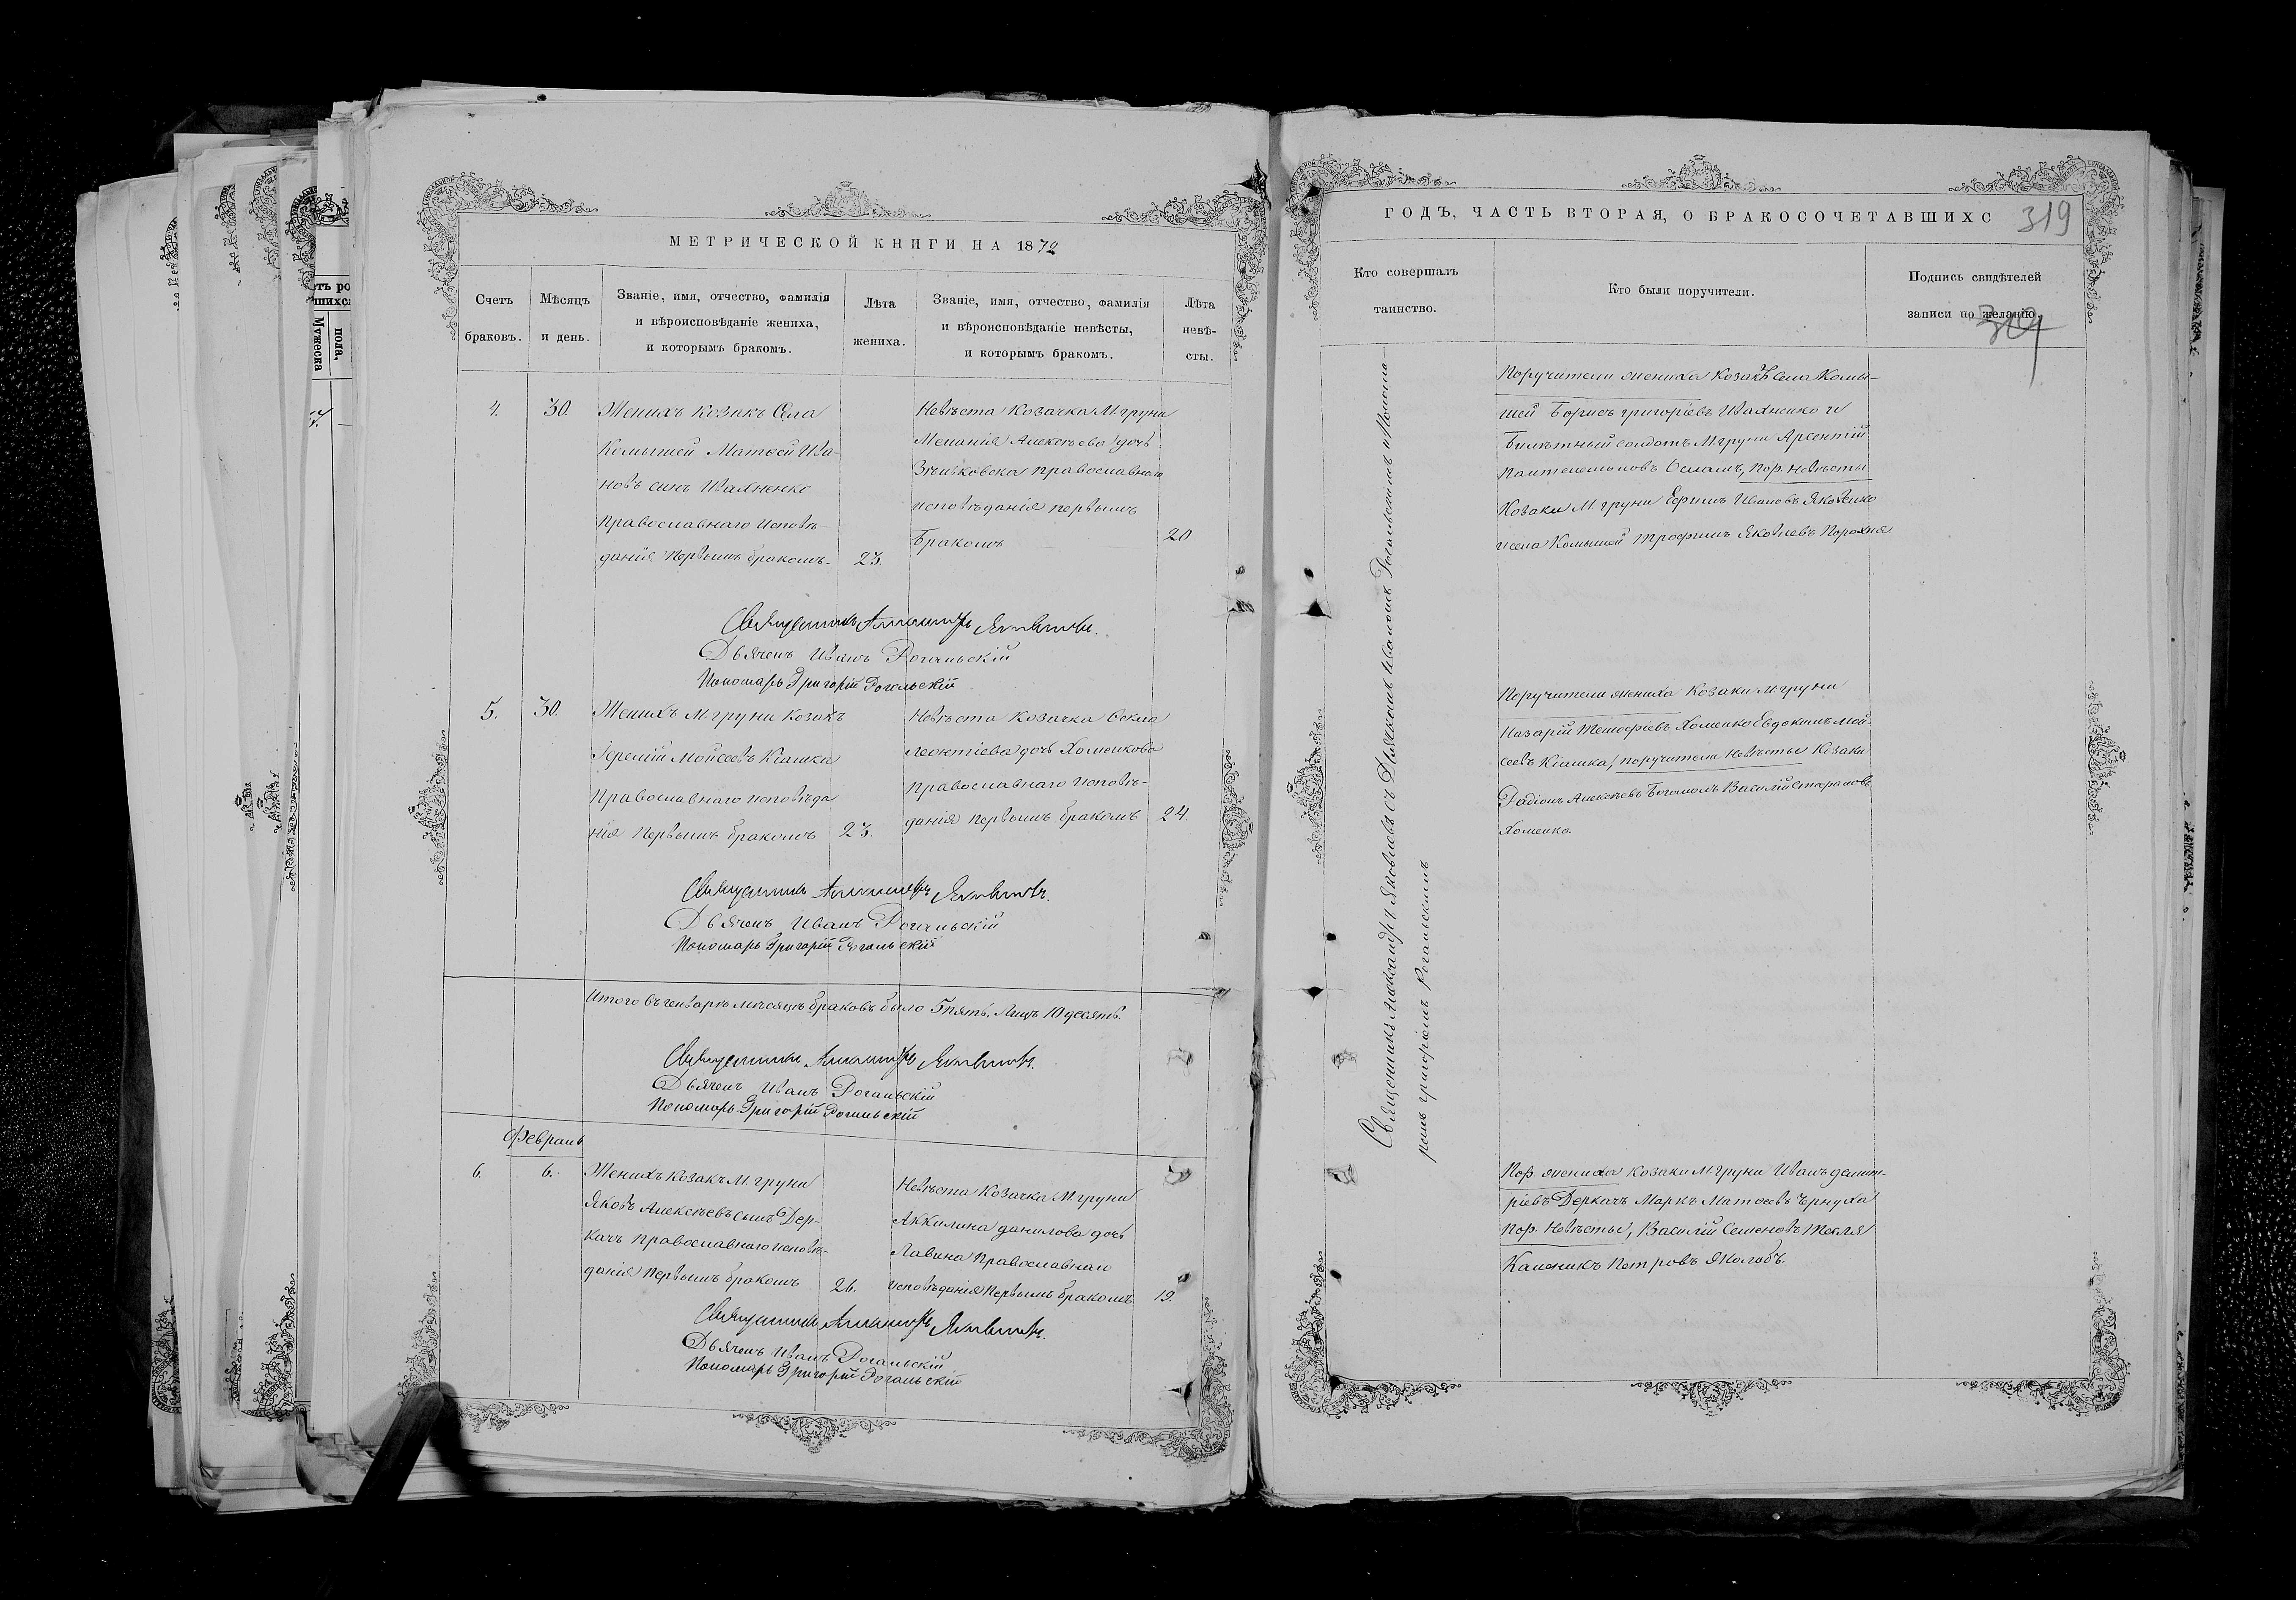 МЕТРИЧЕСКОЙ КНИГИ НА 1872
Счетъ браковъ.
Мѣсяцъ и день.
Званіе, имя, отчество, фамилія
и вѣроисповѣданіе жениха,
и которымъ бракомъ.
Лѣта жениха.
Званіе, имя, отчество, фамилія
и вѣроисповѣданіе невѣсты,
и которымъ бракомъ.
Лѣта невѣ-
сты.
4.
30.
Женихъ козакъ Села
Комышей Матѳей Ива-
новъ сынъ Иваxненко
православнаго исповѣ-
данія первымъ бракомъ.
23.
Невѣста козачка М. груни
Меланія Алексѣева дочь
православнаго
исповѣданія первымъ
бракомъ
20
Священникъ Александръ Яковлевъ.
Дьячокъ Иванъ Рогальскій
Пономарь Григорій Рогальскій
5.
30.
Женихъ М. груни козакъ
Іеремій Мойсеевъ Кіашка
Православнаго исповѣда
нія первымъ бракомъ
23.
Невѣста козачка
Леонтіева дочь Хоменкова
православнаго исповѣ-
данія первымъ бракомъ
24.
Священникъ Александръ Яковлевъ.
Дьячокъ Иванъ Рогальскій
Пономарь Григорій Рогальскій
Итого въ генваре мѣсяцѣ браковъ было 5 пять, лицъ 10 десять.
Священникъ Александръ Яковлевъ.
Дьячокъ Иванъ Рогальскій
Пономарь Григорій Рогальскій
Февраль
6.
6.
Женихъ козакъ М. груни
Яковъ Алексѣевъ сынъ Дер-
качъ православнаго исповѣ-
данія первымъ бракомъ
26.
Невѣста козачка М. груни
Аккилина данилова дочь
православнаго
исповѣданія первымъ бракомъ
19.
Священникъ Александръ Яковлевъ.
Дьячокъ Иванъ Рогальскій
Пономарь Григорій Рогальскій
ГОДЪ, ЧАСТЬ ВТОРАЯ, О БРАКОСОЧЕТАВШИХС
319
Кто совершалъ
таинство.
Кто были поручители.
Подпись свидѣтелей
записи по желанію.
319
Священникъ Александръ Яковлевъ съ Дьячкомъ Иваномъ Рогальскимъ и Понома-
ромъ григоріемъ Рогальскимъ
Поручители жениха козакъ села Комы-
шей Борисъ григоріевъ Иваxненко и
Билѣтный солдатъ М. груни Арсентій
Пантелеимоновъ пор. невѣсты
Козаки М. груни Ефимъ Ивановъ Яковенко
и села Комышей трофимъ Яковлевъ Порохня
Поручители жениха козаки М. груни
Назарій Хоменко Евдокимъ Мой-
сеевъ Кіашка, поручители невѣсты козаки
Радіонъ Алексѣевъ Богомолъ Василій Стефановъ
Хоменко.
Пор. жениха козаки М. груни Иванъ димит-
ріевъ Деркачъ Маркъ Матѳеевъ Чернуха
пор. невѣсты, Василій Семеновъ Текля
Каленикъ Петровъ Жолобъ.